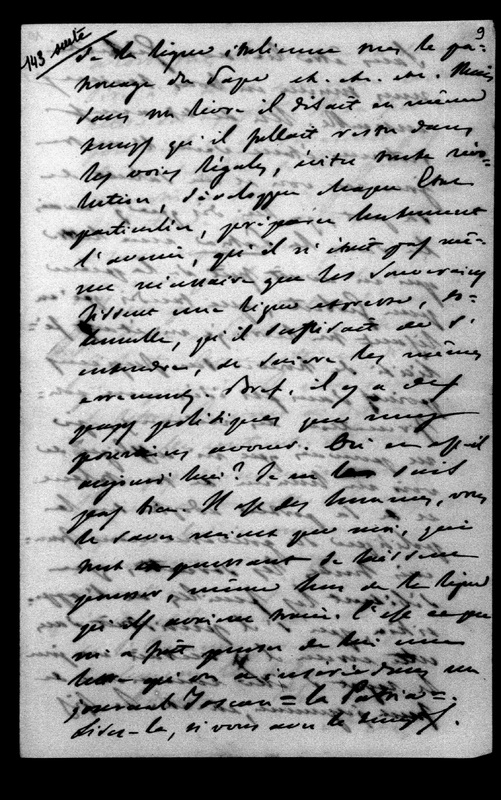 143 suite
9
de la ligue italienne sous le pa-
tronage du Pape etc. etc. etc. Mais
dans son livre il disait en même
temps qu'il fallait rester dans
les voies légales, éviter toute révo-
lution, développer chaque Etat
particulier, préparer lentement
l'avenir, qu'il n'était pas mê-
me nécessaire que les Souverains
fissent une ligue expresse,
qu'il suffisait de s'
entendre, de suivre les mêmes
errements. Bref, il y a des
pages politiques que nous
pourrions avouer. Où en est-il
aujourd'hui? Je ne le sais
pas bien. Il est des hommes, vous
le savez mieux que moi, qui
tout en puissant se laissent
pousser, même hors de la ligne
qu'ils avaient tracée. C'est ce que
m'a fait penser de lui une
lettre qu'on a insérée dans un
journal Toscan = la Patria =.
Lisez-la, si vous avez le temps.